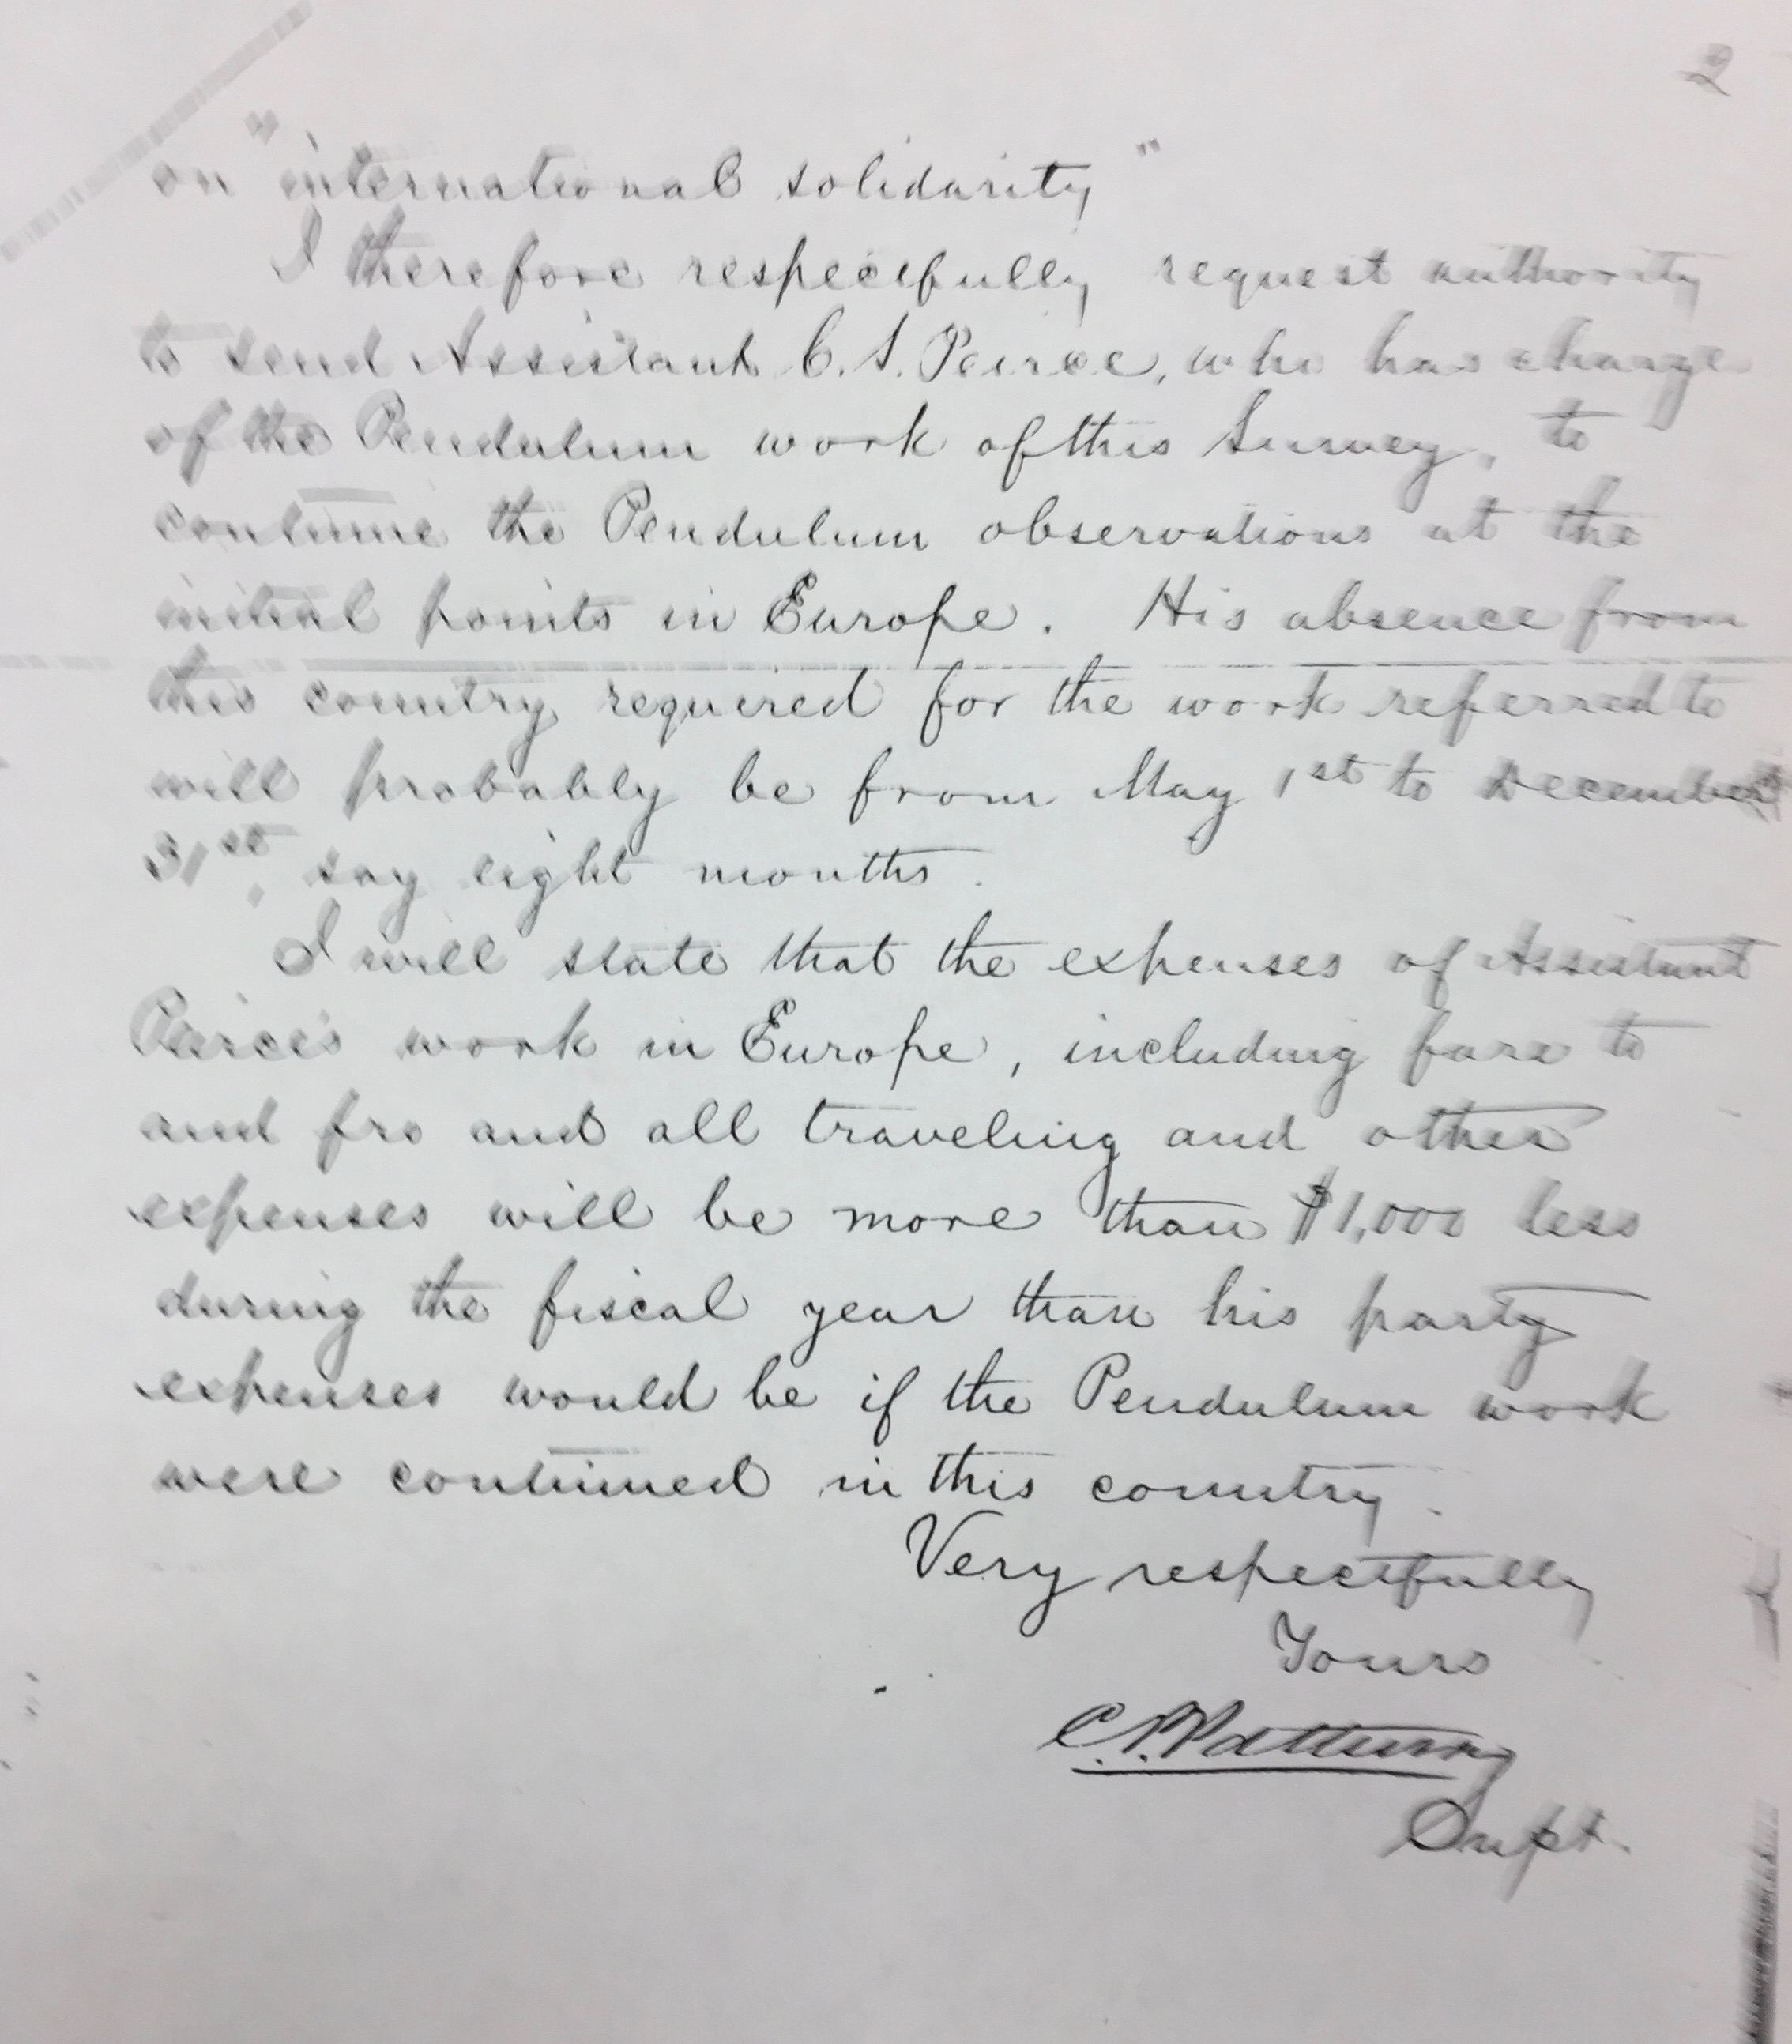 2
on "international solidarity"
I therefore respectfully request authority
to send Assistant C. S. Peirce, who has charge
of the Pendulum work of this Survey, to
continue the Pendulum observations at the
initial points in Europe. His absence from
this country required for the work referred to
will probably be from May 1st to December
31st, say eight months.
I will state that the expenses of Assistant
Peirce's work in Europe, including fare to
and fro and all traveling and other
expenses will be more than $1,000 less
during the fiscal year than his party
expenses would be if the Pendulum work
were continued in this country.
Very respectfully
Yours
C. P. Patterson
Supt.